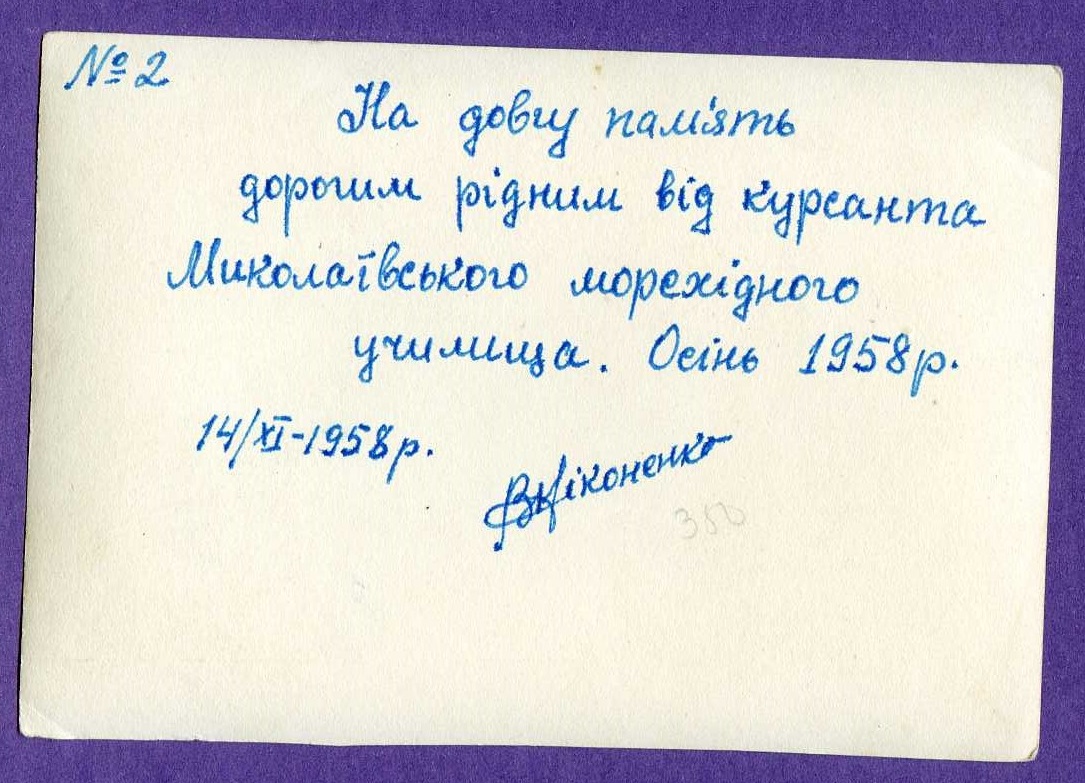 № 2
На довгу пам'ять
дорогим рідним від курсанта
Миколаївського морехідного
училища. Осінь 1958 р.
14/XI-1958 р.
ВНіконенко
350